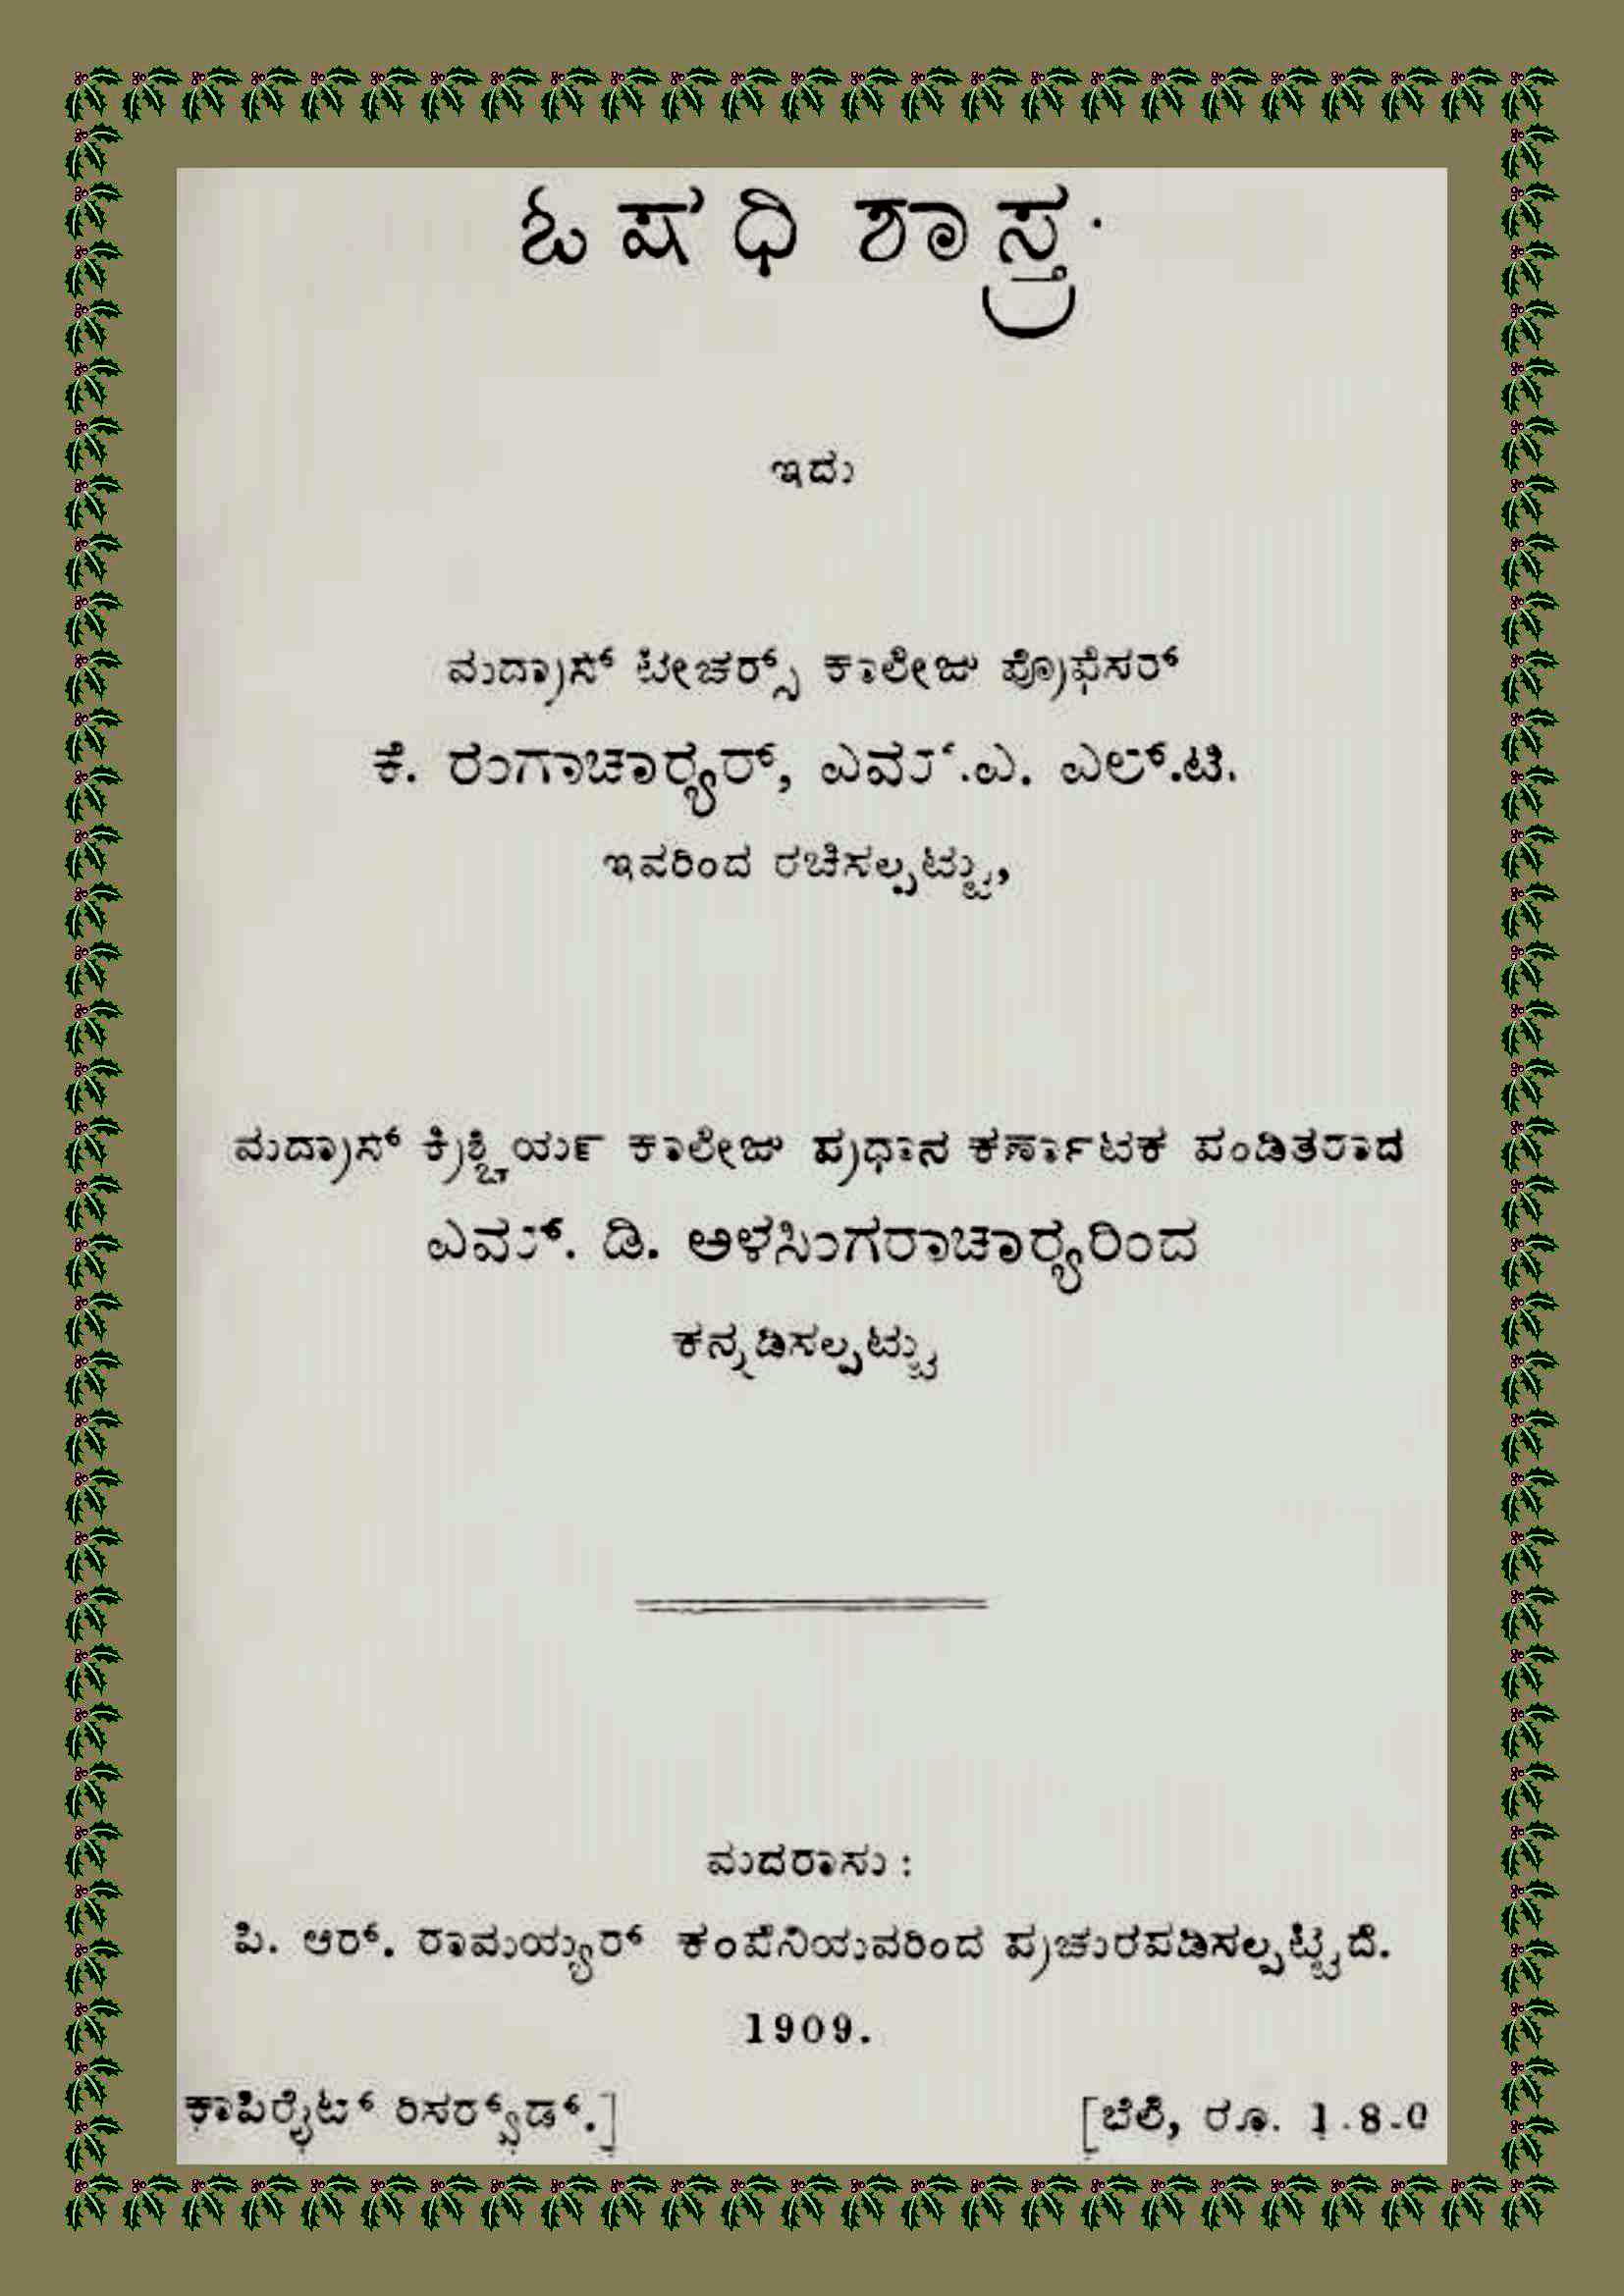 ಓಷಧಿ ಶಾಸ್ತ್ರ.
ಇದು
ಮದ್ರಾಸ್ ಟೀಚರ್ಸ್ಸ್ ಕಾಲೇಜು ಪ್ರೊಫೆಸರ್
ಕೆ. ರಂಗಾಚಾರ‍್ಯರ್, ಎಮ್.ಎ. ಎಲ್.ಟಿ.
ಇವರಿಂದ ರಚಿಸಲ್ಪಟ್ಟು,
ಮದ್ರಾಸ್ ಕ್ರಿಶ್ಚಿರ್ಯ ಕಾಲೇಜು ಪ್ರಧಾನ ಕರ್ಣಾಟಕ ಪಂಡಿತರಾದ
ಎಮ್. ಡಿ. ಅಳಸಿಂಗರಾಚಾರ‍್ಯರಿಂದ
ಕನ್ನಡಿಸಲ್ಪಟ್ಟು
ಮದರಾಸು :
ಪಿ. ಆರ್. ರಾಮಯ್ಯರ್ ಕಂಪೆನಿಯವರಿಂದ ಪ್ರಚುರಪಡಿಸಲ್ಪಟ್ಟಿದೆ.
1909.
ಕಾಪಿರೈಟ್ ರಿಸರ‍್ವ್ಡ್.] [ಬೆಲೆ, ರೂ. 1-8-0